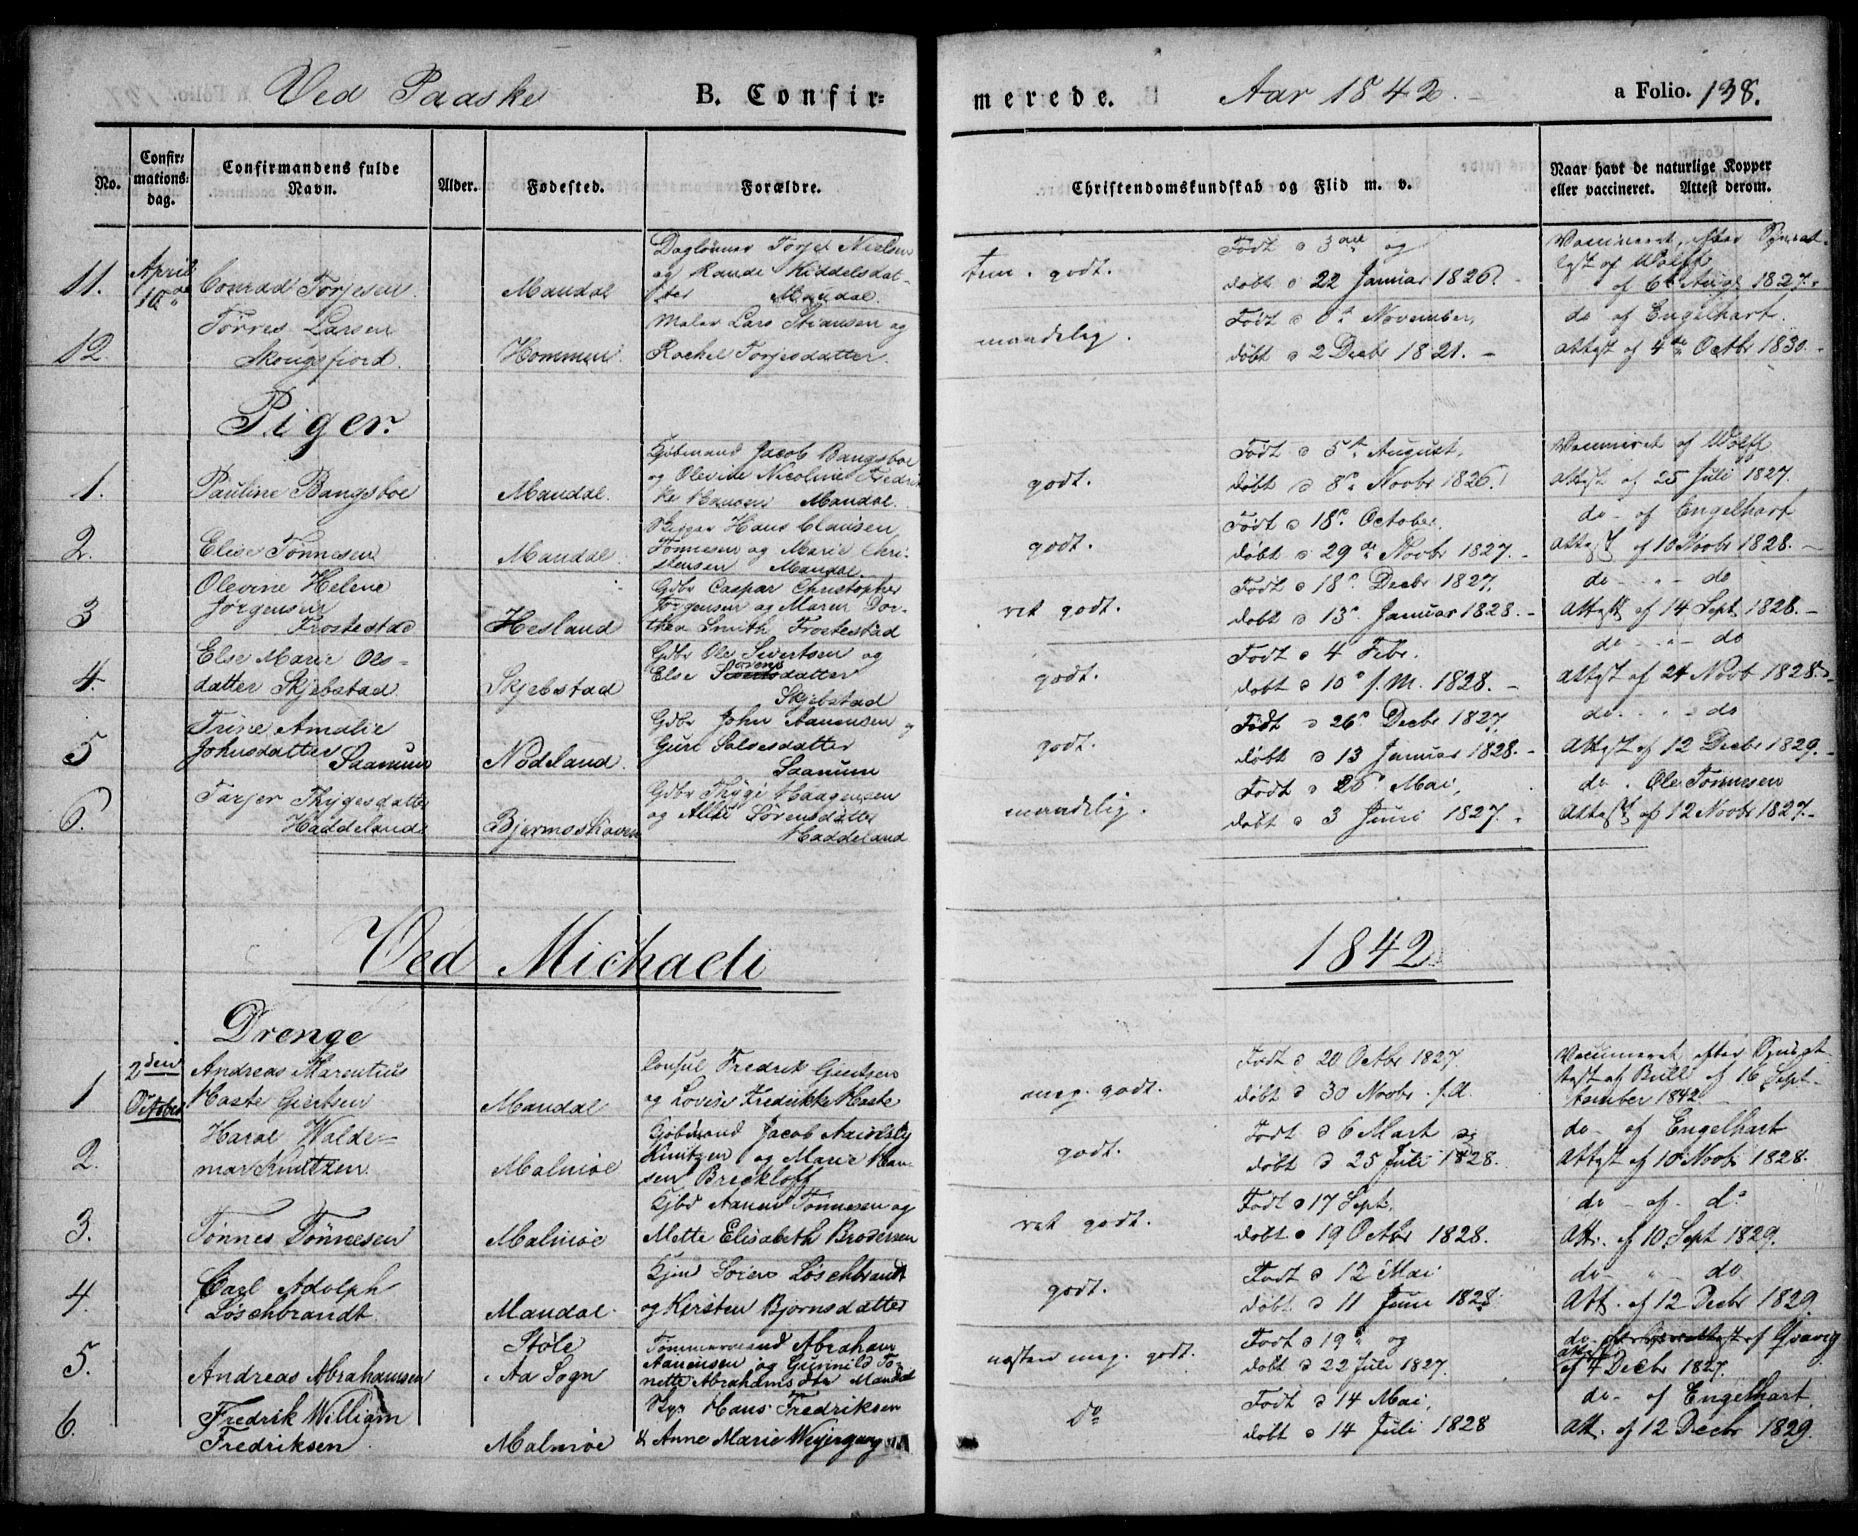 Ved Paaske
B. Confir=
merede.
Aar 1842.
a Folio. 138.
No.
Confir=
mations=
dag.
Confirmandens fulde
Navn.
Alder.
Fødested.
Forældre.
Christendomskundskab og Flid m. v.
Naar havt de naturlige Kopper
eller vaccineret. Attest derom.
11.
April
10de
Conrad Torjesen
Mandal
Daglønner Torjer Nielsen
og Rande Kiddelsdat-
ter Mandal.
tem. godt.
Født d 3 og
døbt d 22 Januar 1826.
Vaccineret, efter
af Wolff
af 6t Aug 1827.
12
Tørres Larsen
Skougsfiord.
Hommen
Maler Lars Stiansen og
Rachel Torjesdatter.
maadelig.
Født d November,
døbt d 2 Decbr 1821. -
do af Engelhart.
attest af 4de Octbr 1830. -
Piger.
1.
Pauline Bangsboe
Mandal.
Kjøbmand Jacob Bangsboe
og Olevine Nicoline Fredrik-
ke Hansen Mandal.
godt.
Født d 5t August,
døbt d 8d Novbr 1826.
Vaccineret af Wolff
attest af 25 Juli 1827.
2.
Elise Tønnesen
Mandal.
Hans Clausen
Tønnesen og Marie Chri-
stensen Mandal.
godt.
Født d 18d October
døbt d 29de Novbr 1827. -
do - af Engelhart
attest af 10 Novbr 1828. -
3
Olevine Helene
Jørgensen
Frostestad
Hesland
Gdbr Caspar Christopher
Jørgensen og Maren Dor-
thea Smith Frostestad
ret godt.
Født d 18d Decbr 1827,
døbt d 13d Januar 1828. -
do - " - do
Attest af 14 Sept 1828. -
4.
Else Marie Ols-
datter Skjebstad.
Skjebstad
Gdbr Ole Sivertsen og
Else Sørensdatter
Skjebstad
godt.
Født d 4 Febr.
døbt d 10d s. M. 1828. -
do - " - do
attest af 24 Novb 1828. -
5
Trine Amalie
Johnsdatter
Saanum
Nødeland.
Gdbr John Aanensen og
Guri Salvesdatter
Saanum
godt.
Født d 26d Decbr 1827,
døbt d 13 Januar 1828. -
do. " " do
Attest af 12 Decbr 1829. -
6.
Tarjer Thygesdatter
Haddeland
Bjermoskoven
Gdbr Thyge Haagensen
og Allse Sørensdatter
Haddeland
maadelig.
Født d 26d Mai,
døbt d 3 Juni 1827. -
do. Ole Tønnesen
Attest af 12 Novbr 1827. -
Ved Michaeli
1842
Drenge
1
2den
October
Andreas Marentius
Haste Giertsen
Mandal
Consul Fredrik Giertsen
og Lovise Fredrikke Haste
meg. godt.
Født d 20 Octbr 1827
døbt d 30 Novbr. s.d.
Vaccineret efter
af Bull af 16 Sept-
tember 1842.
2.
Haral Walde-
mar Knutzen
Malmøe
Kjøbmand Jacob
Knutzen og Marie Han-
sen Breckloff
godt.
Født d 6 Mart og
døbt d 25 Juli 1828.
do - af Engelhart
Attest af 10 Novbr 1828.
3.
Tønnes Tønnesen
Malmøe
Aanen Tønnesen og
Mette Elisabeth Brodersen
ret godt.
Født d 17 Sept,
døbt d 19 Octbr 1828.
do - af - do
Att. af 10 Sept 1829.
4.
Carl Adolph
Løschbrandt.
Mandal.
Søren Løschbrandt
og Kirsten Bjørnsdatter
godt.
Født d 12 Mai
døbt d 11 Juni 1828.
do - " - do
Att. af 12 Decbr 1829.
5.
Andreas Abrahamsen
Støle
Aa Sogn
Tømmermand Abraham
Aanensen og Gunnild To-
nette Abrahamsdtr Mandal
næsten meg. godt.
Født d 19d og
døbt d 22 Juli 1827.
do - af
af 4 Decbr 1827.
6.
Fredrik William
Fredriksen
Malmøe
Hans Fredriksen
& Anne Marie Weyergang
do
Født d 14 Mai,
døbt d 14 Juli 1828
do - af Engelhart,
Att. af 12 Decbr 1829.